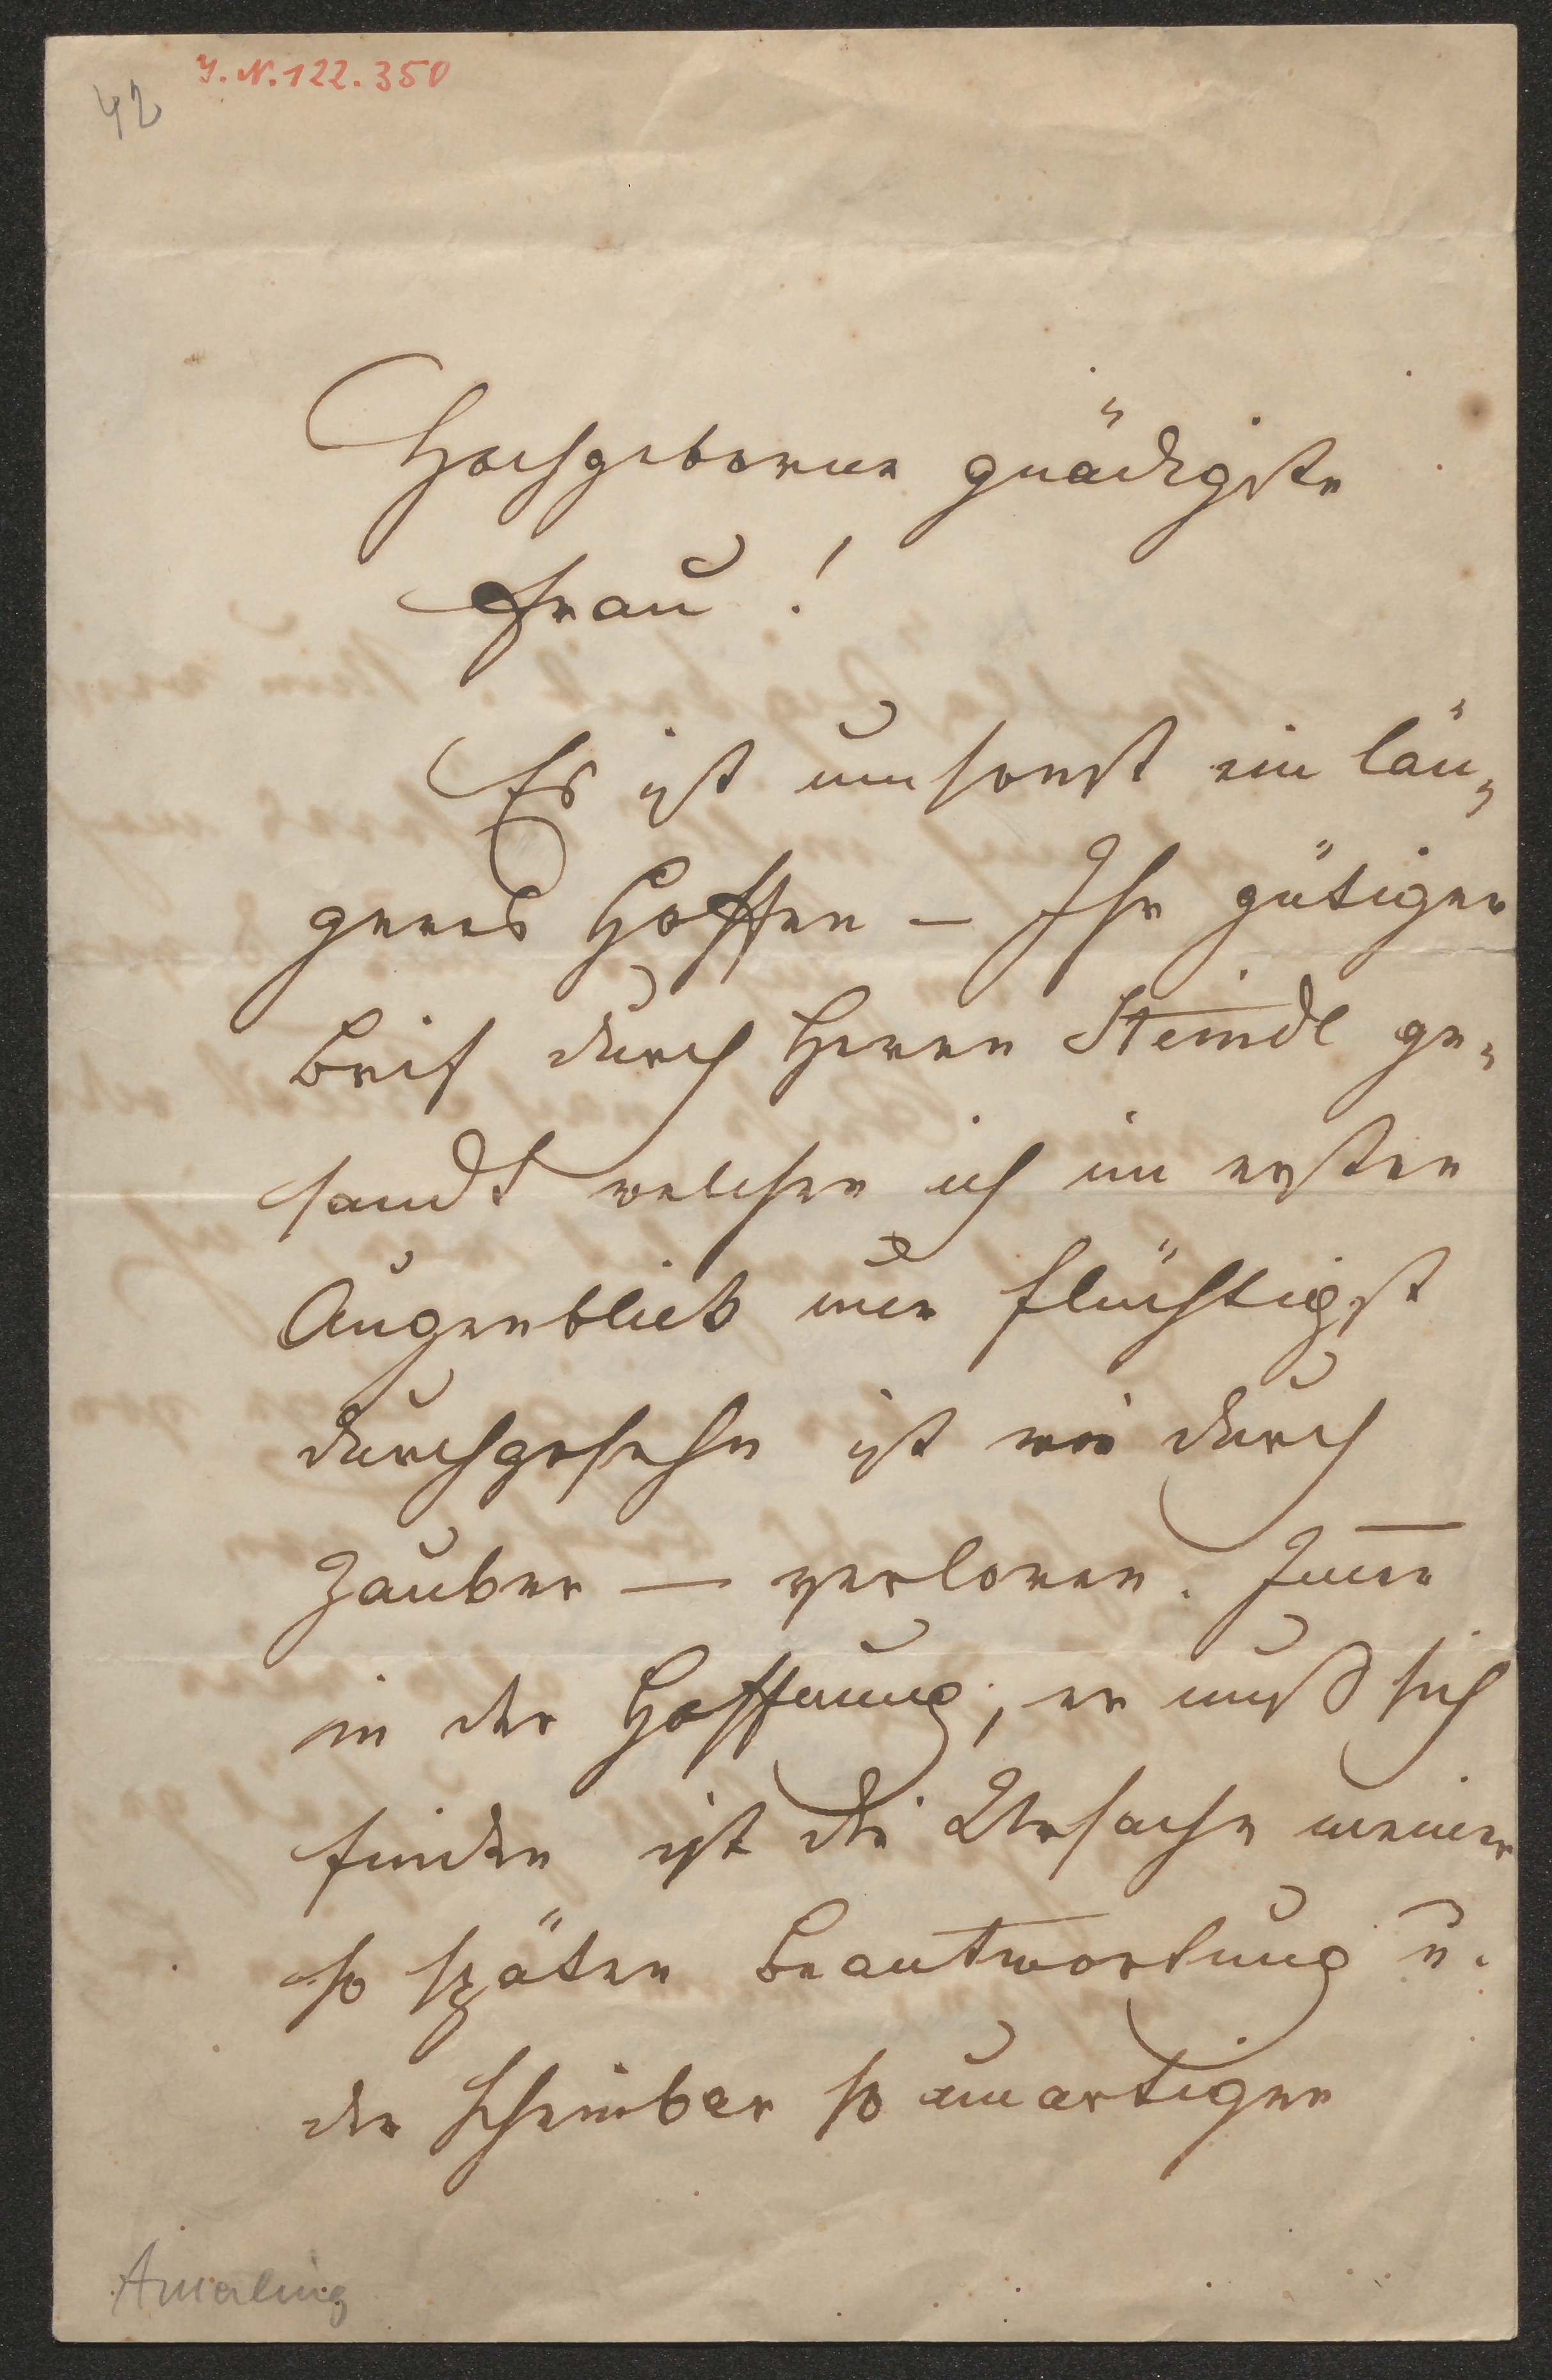 J.N. 122.350
42
Hochgeborne gnädigste
Frau!
Es ist umsonst ein län„
geres Hoffen — Ihr gütiger
Brief durch Herrn Steindl ge„
sandt welchen ich im ersten
Augenblick nur flüchtigst
durchgesehn ist wie durch
Zauber — verloren. Im̄er
in der Hoffnung, er muß sich
finden ist die Ursache meiner
so späten Beantwortung u.
der scheinbar so unartigen
Amerling